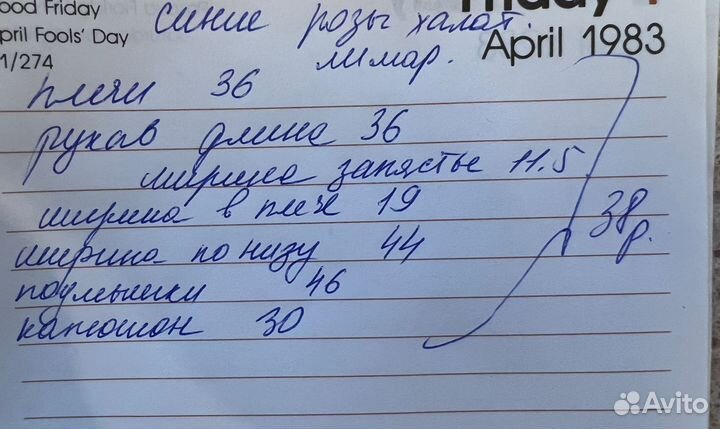 ood Friday
pril Fools' Day
1/274
April 1983
синие розы халат.
плечи 36
рукав длина 36
ширина запястье 11.5
ширина в плече 19
ширина по низу 44
подмышки 46
капюшон 30
38 р.
Avito